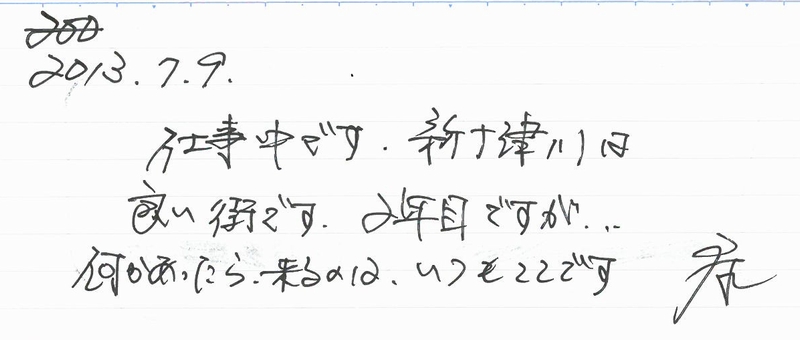 2013.7.9.
仕事中です. 新十津川は
良い街です. 2年目ですが...
何かあったら.来るのは、いつもここです